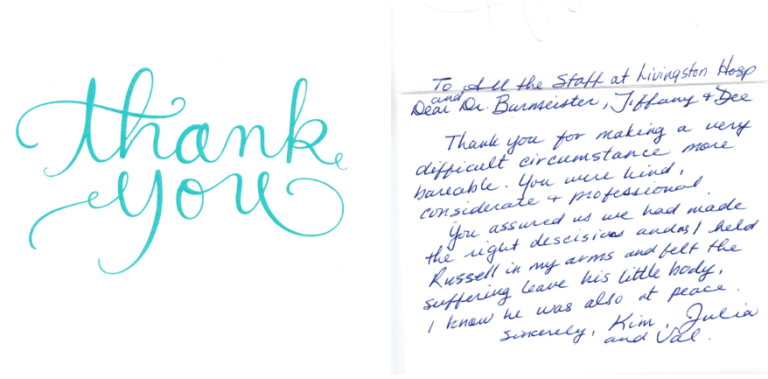 thank
you
To All the Staff at Livingston Hosp
and
Dear Dr. Burmeister, Tiffany & Dee
Thank you for making a very
difficult circumstance more
bareable. You were kind,
considerate & professional.
You assured us we had made
the right descisions and as I held
Russell in my arms and felt the
suffering leave his little body,
I know he was also at peace.
Sincerely, Kim, Julia
and Val.